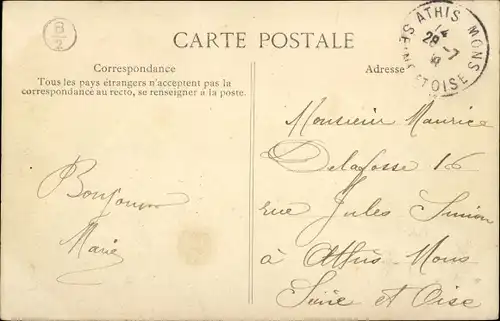 B
2
CARTE POSTALE
ATHIS MONS
SEINE ET OISE
28 -7
Correspondance
Tous les pays étrangers n'acceptent pas la
correspondance au recto, se renseigner à la poste.
Adresse
Bonjour
Marie
Monsieur Maurice
Delafosse 16
rue Jules Simon
à Athis-Mons
Seine et Oise